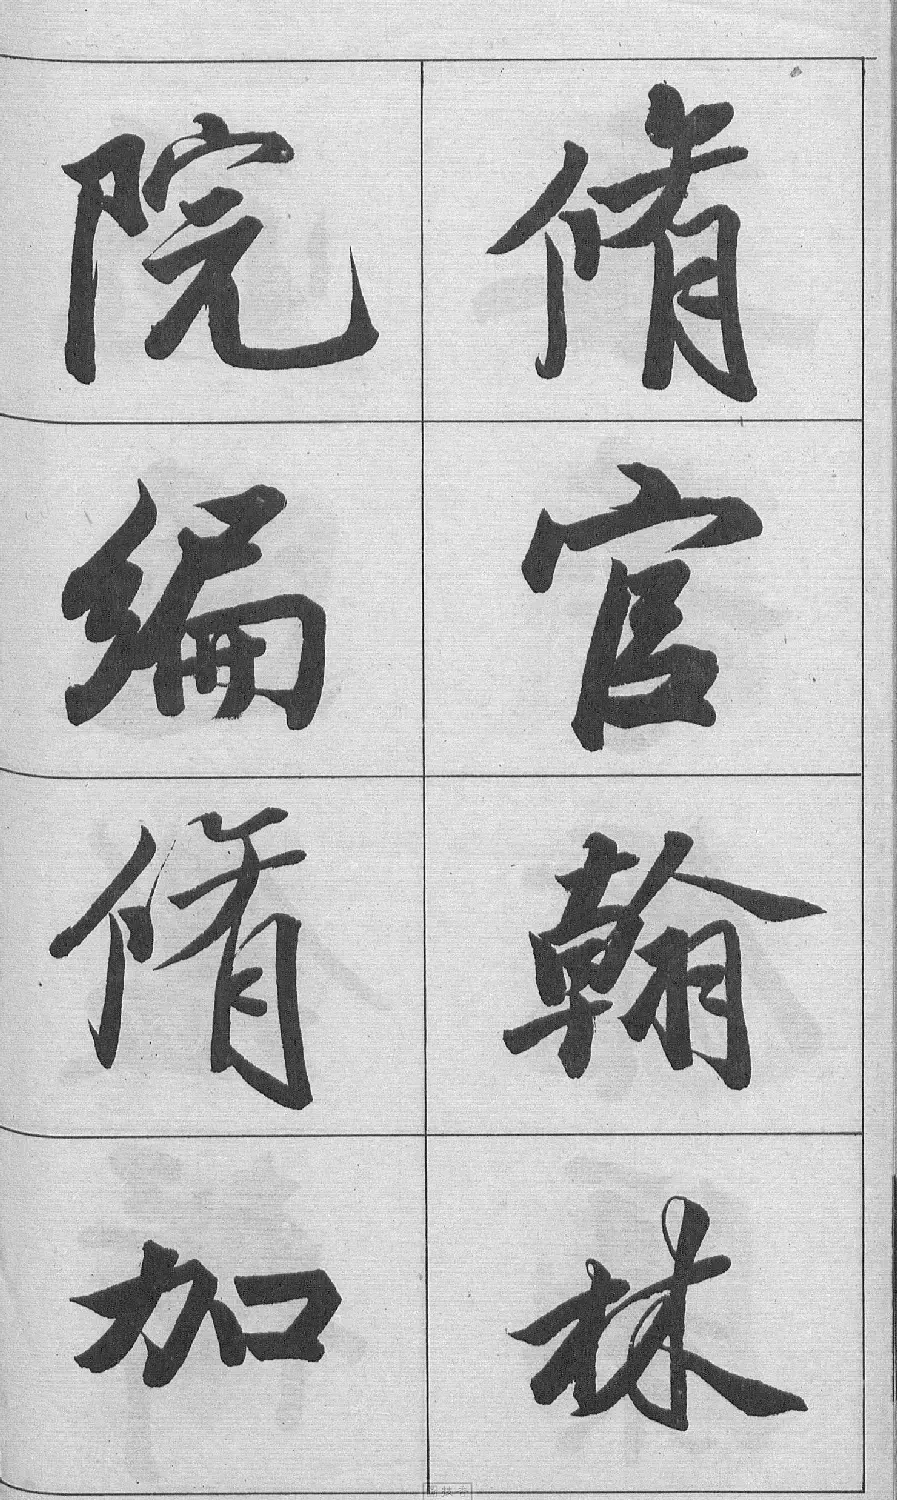 脩官翰林
院編脩加